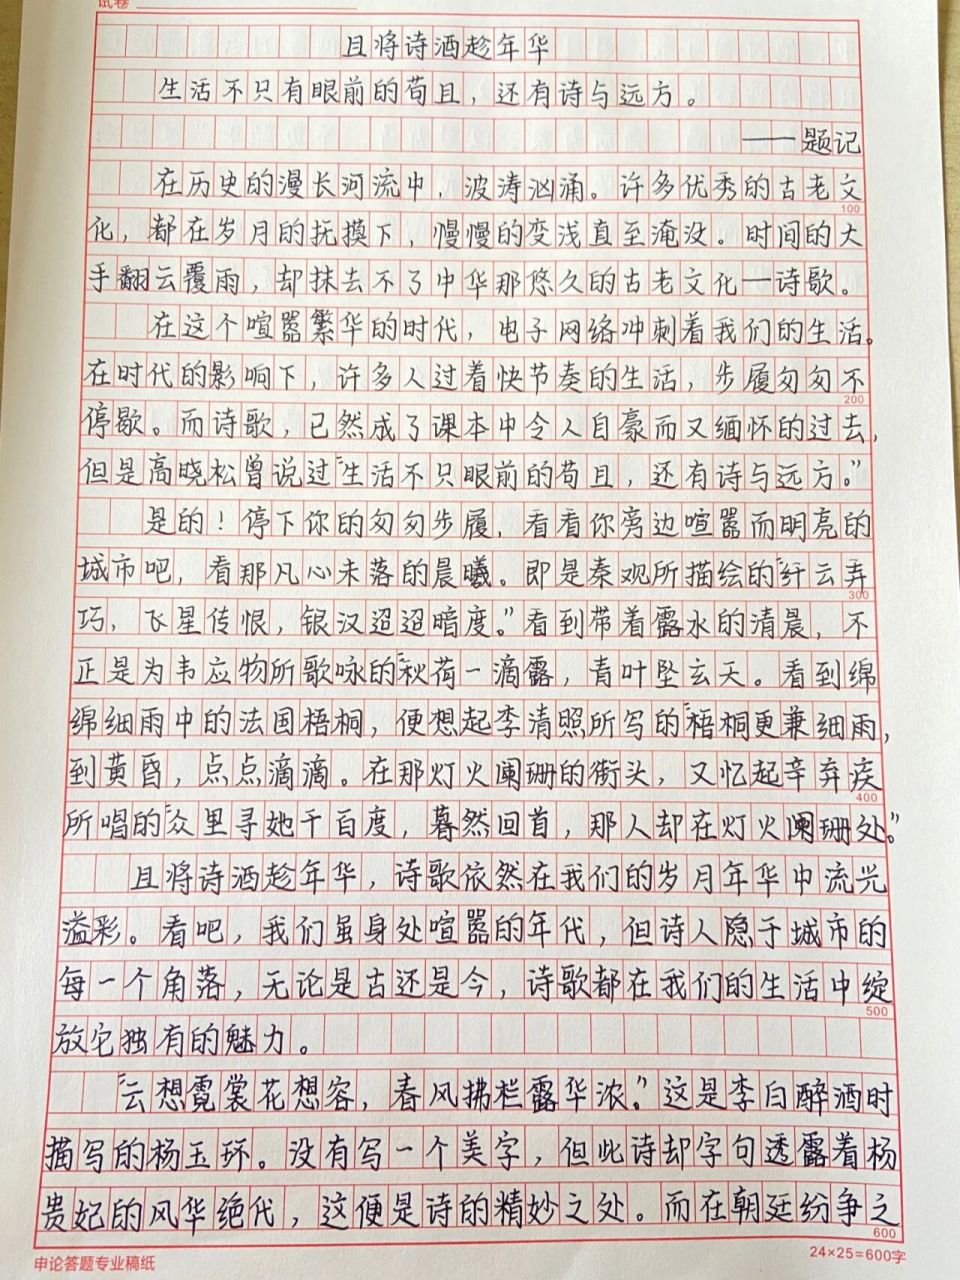 试卷
且将诗酒趁年华
生活不只有眼前的苟且，还有诗与远方。
——题记
在历史的漫长河流中，波涛汹涌。许多优秀的古老文
100
化，都在岁月的抚摸下，慢慢的变浅直至淹没。时间的大
手翻云覆雨，却抹去不了中华那悠久的古老文化—诗歌。
在这个喧嚣繁华的时代，电子网络冲刺着我们的生活。
在时代的影响下，许多人过着快节奏的生活，步履匆匆不
200
停歇。而诗歌，已然成了课本中令人自豪而又缅怀的过去，
但是高晓松曾说过“生活不只眼前的苟且，还有诗与远方。”
是的！停下你的匆匆步履，看看你旁边喧嚣而明亮的
城市吧，看那凡心未落的晨曦。即是秦观所描绘的“纤云弄
300
巧，飞星传恨，银汉迢迢暗度。”看到带着露水的清晨，不
正是为韦应物所歌咏的“秋荷一滴露，青叶坠玄天。看到绵
绵细雨中的法国梧桐，便想起李清照所写的“梧桐更兼细雨，
到黄昏，点点滴滴。在那灯火阑珊的街头，又忆起辛弃疾
400
所唱的“众里寻她千百度，暮然回首，那人却在灯火阑珊处。”
且将诗酒趁年华，诗歌依然在我们的岁月年华中流光
溢彩。看吧，我们虽身处喧嚣的年代，但诗人隐于城市的
每一个角落，无论是古还是今，诗歌都在我们的生活中绽
500
放它独有的魅力。
“云想霓裳花想容，春风拂栏露华浓。”这是李白醉酒时
描写的杨玉环。没有写一个美字，但此诗却字句透露着杨
贵妃的风华绝代，这便是诗的精妙之处。而在朝廷纷争之
600
申论答题专业稿纸
24×25=600字